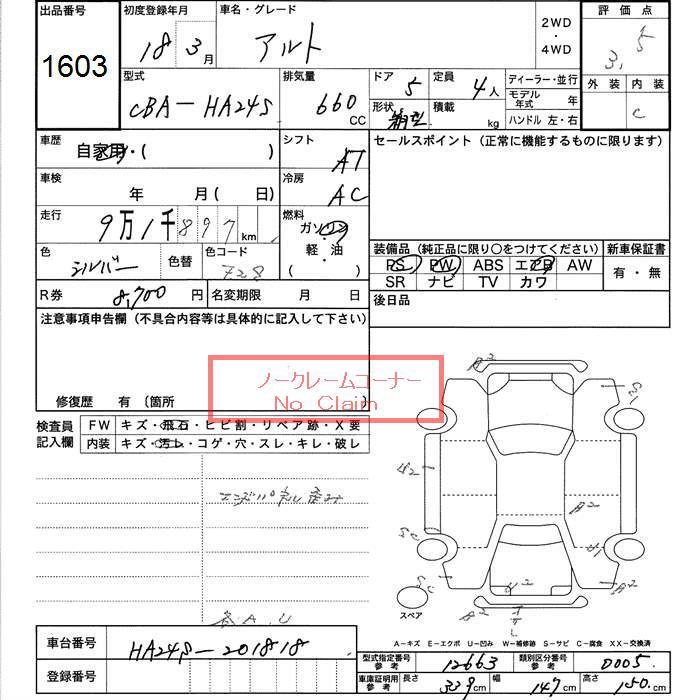 出品番号 初度登録年月 車名・グレード 2WD・4WD 評価点
1603 18 3月 アルト 3.5
型式 排気量 ドア 5 定員 4人 ディーラー・並行 外装 内装
CBA-HA24S 660 CC 形状 積載 kg モデル年式 年 C
ハンドル 左・右
車歴 自家用・( ) シフト AT セールスポイント (正常に機能するものに限ります)
車検 年 月 ( 日) 冷房 AC
走行 9万1千897 km 燃料 ガソリン・軽・油 ( )
色 シルバー 色替 色コード 728 装備品 (純正品に限り○をつけてください) 新車保証書
PS PW ABS エアB AW 有・無
SR ナビ TV カワ
R券 8,700円 名変期限 月 日 後日品
注意事項申告欄 (不具合内容等は具体的に記入して下さい)
ノークレームコーナー
No Claim
修復歴 有 〔箇所 〕
検査員記入欄 FW キズ・飛石・ヒビ割・リペア跡・X要
内装 キズ・汚レ・コゲ・穴・スレ・キレ・破レ
A2
A2
A2
A2
A2
スペア
A-キズ E-エクボ U-凹み W-補修跡 S-サビ C-腐食 XX-交換済
車台番号 HA24S-201818
登録番号
型式指定番号 参考 12663 類別区分番号 参考 0005
車庫証明用 参考 長さ 339cm 幅 147cm 高さ 150cm